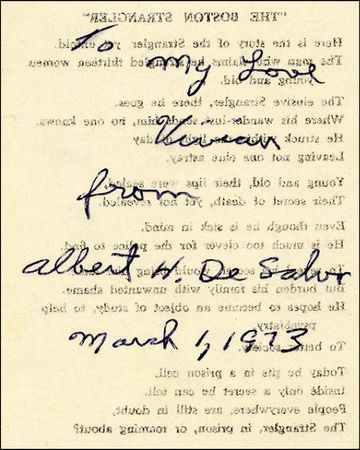 "THE BOSTON STRANGLER"
To
Here is the story of the Strangler yet untold.
The man who claims he thirteen women
My Love
young and old.
The elusive Strangler, there he goes.
Where his wander-lust sends him, no one knows.
Vivian
He struck within the light of day
Leaving not one clue astray.
Young and old, their lips were sealed
from
Their secret of death, yet not revealed.
Even though he is sick in mind,
He is much too clever for the police to find.
Albert H. De Salvo
To his secret would
But burden his family with unwanted shame.
He hopes to become an object of study, to help
March 1, 1973
To better society.
Today he sits in a prison cell.
Inside only a secret he can tell.
People everywhere, are still in doubt,
The Strangler, in prison, or roaming about?